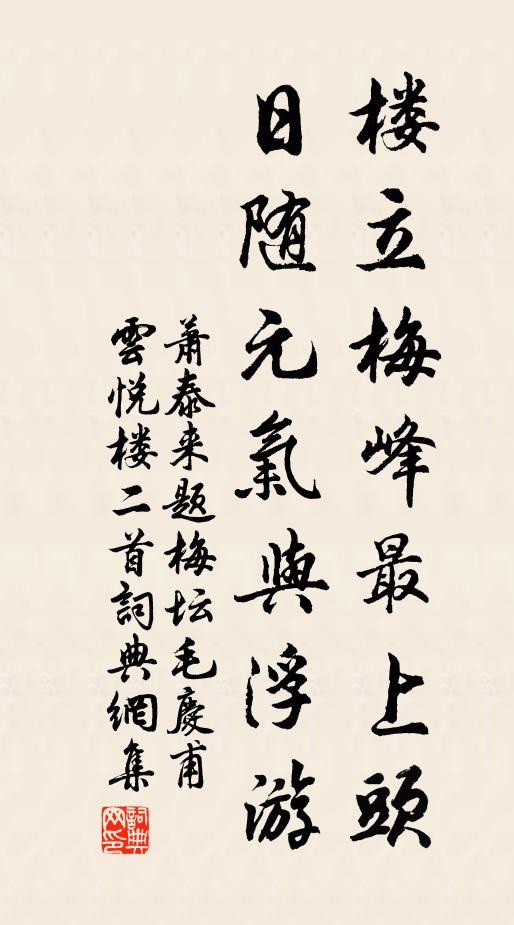 楼立梅峰最上頭
日随元氣與浮游
萧泰来题梅坛毛慶甫
雲悦楼二首詞典網集
詞典网印